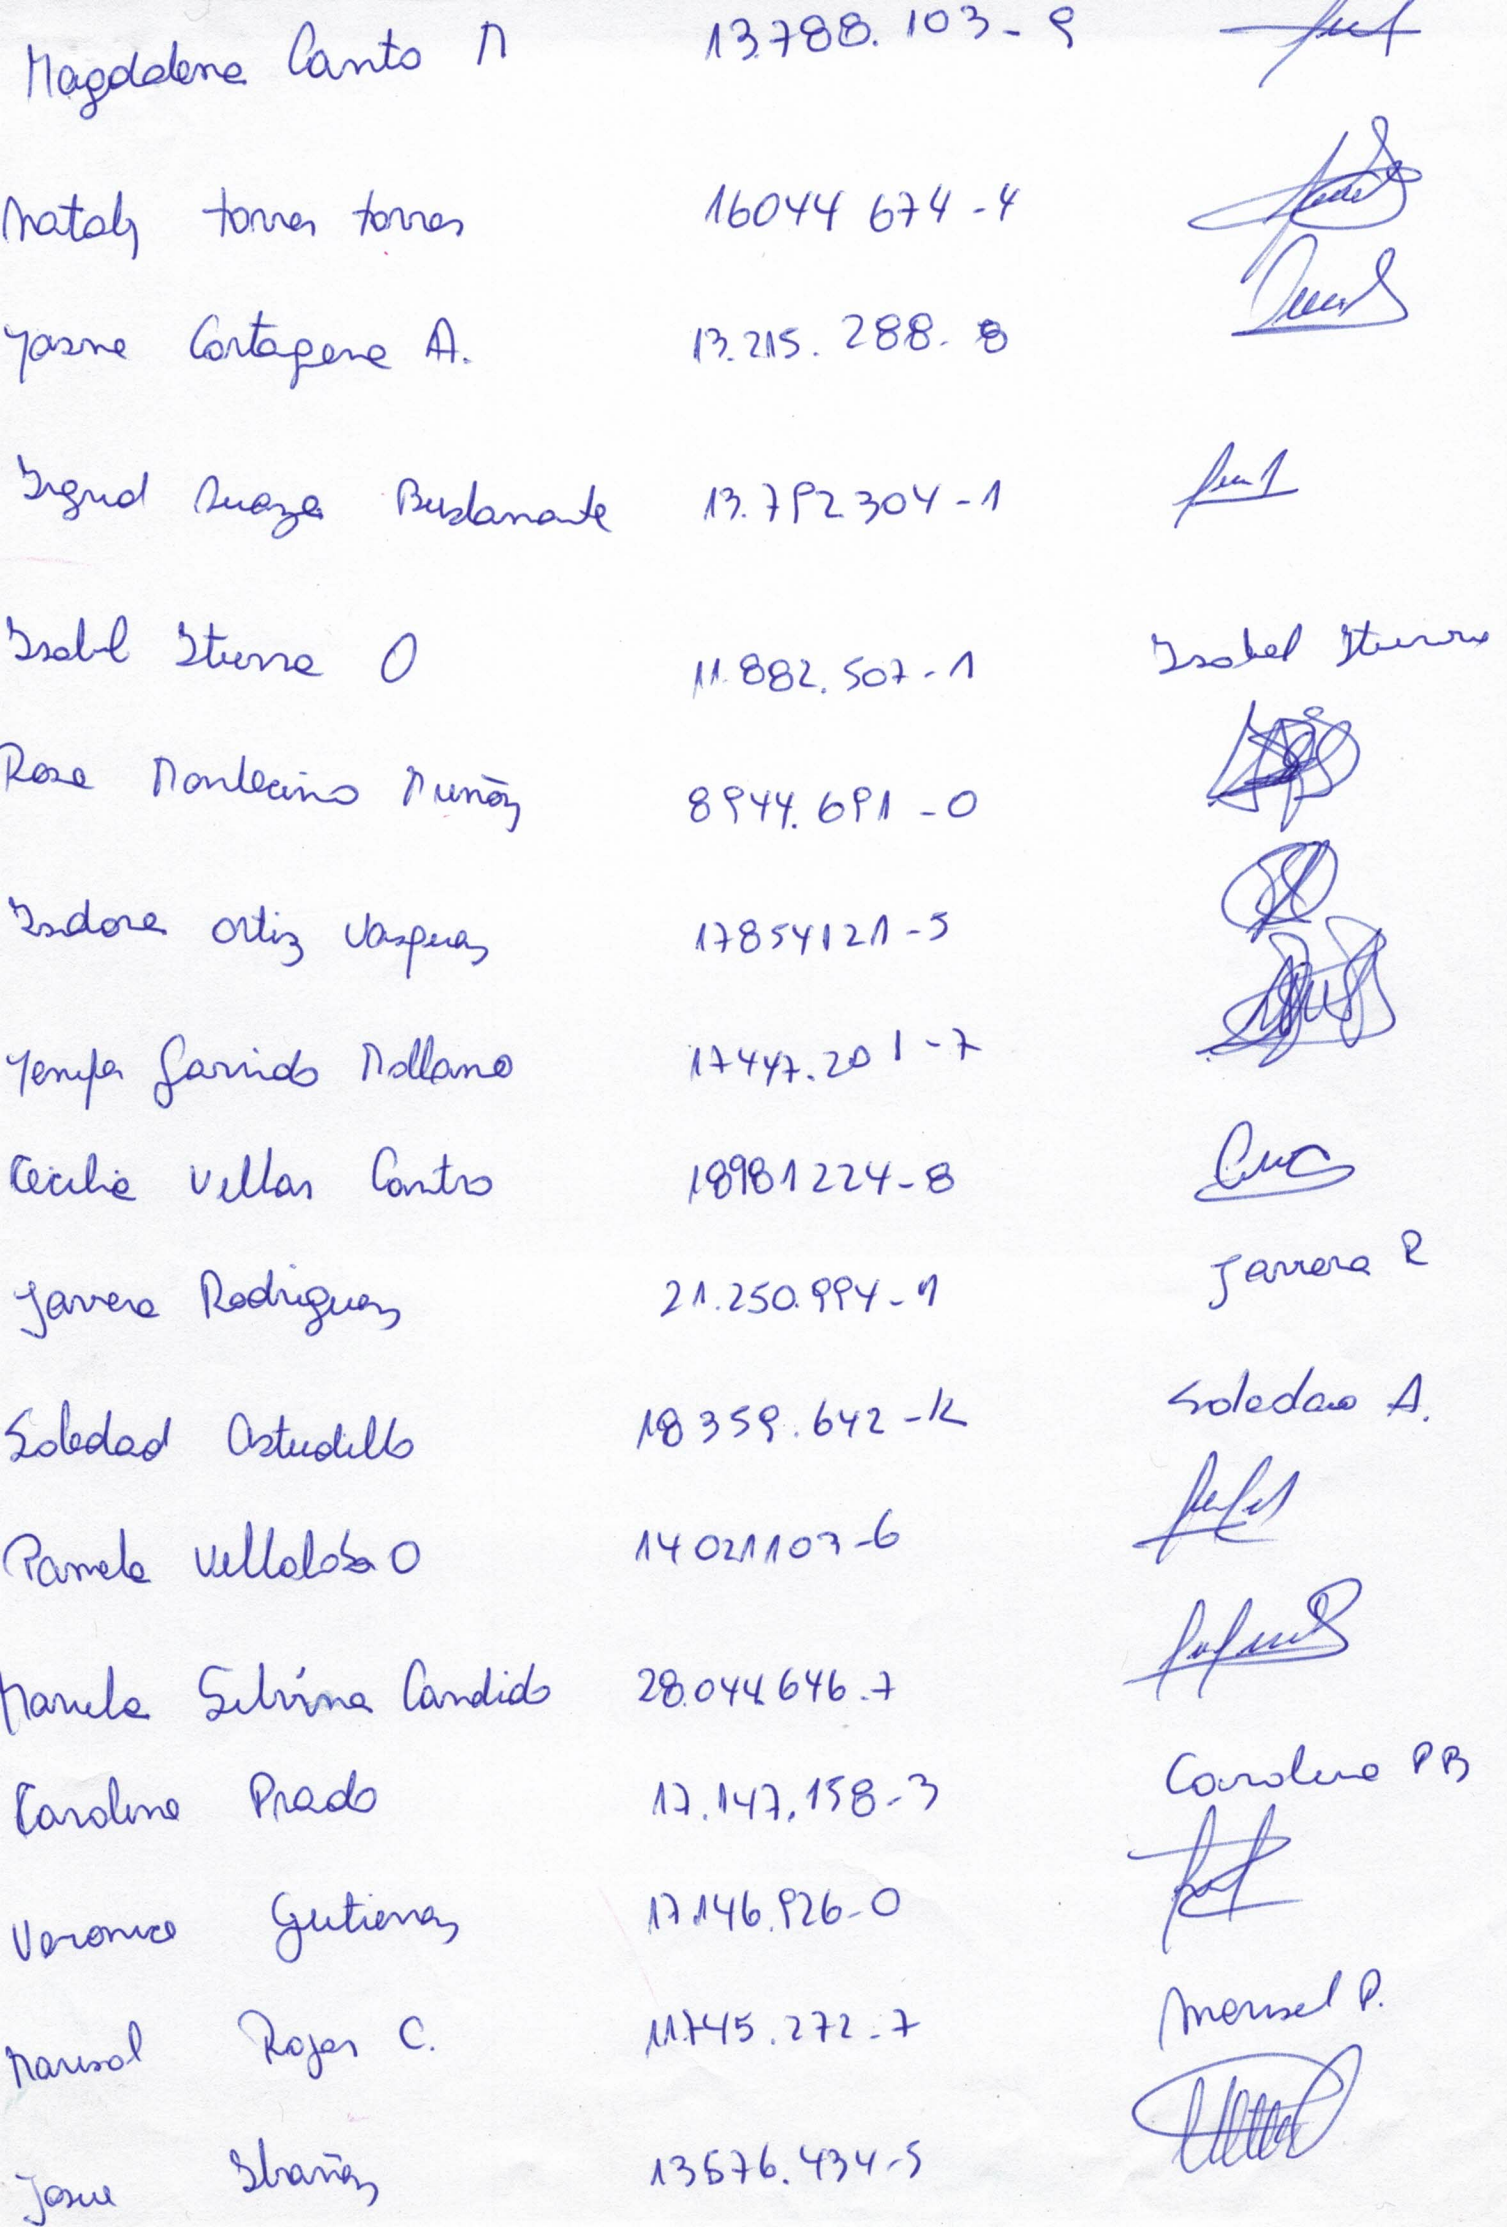 Magdalena Canto M 13.788.103-9
Nataly torres torres 16044 674-4
Yasna Cartagena A. 13.215.288-8
Ingrid Suazo Bustamante 13.792304-1
Isabel Iturra O 11.882.507-1 Isabel Iturra
Rosa Montecino Muñoz 8944.691-0
Isidora Ortiz Vasquez 17854121-5
Yenifer Garrido Mellano 17447.201-7
Cecilia Villar Castro 18981224-8
Javiera Rodriguez 21.250.994-1 Javiera R
Soledad Astudillo 18359.642-K Soledad A.
Pamela Villalobo O 14021107-6
Mariela Silvina Candido 28.044646-7
Carolina Prado 17.147.158-3 Carolina PB
Veronica Gutierrez 17.146.926-0
Marisol Rojas C. 11745.272-7 Marisol P.
Josue Ibañez 13576.434-5